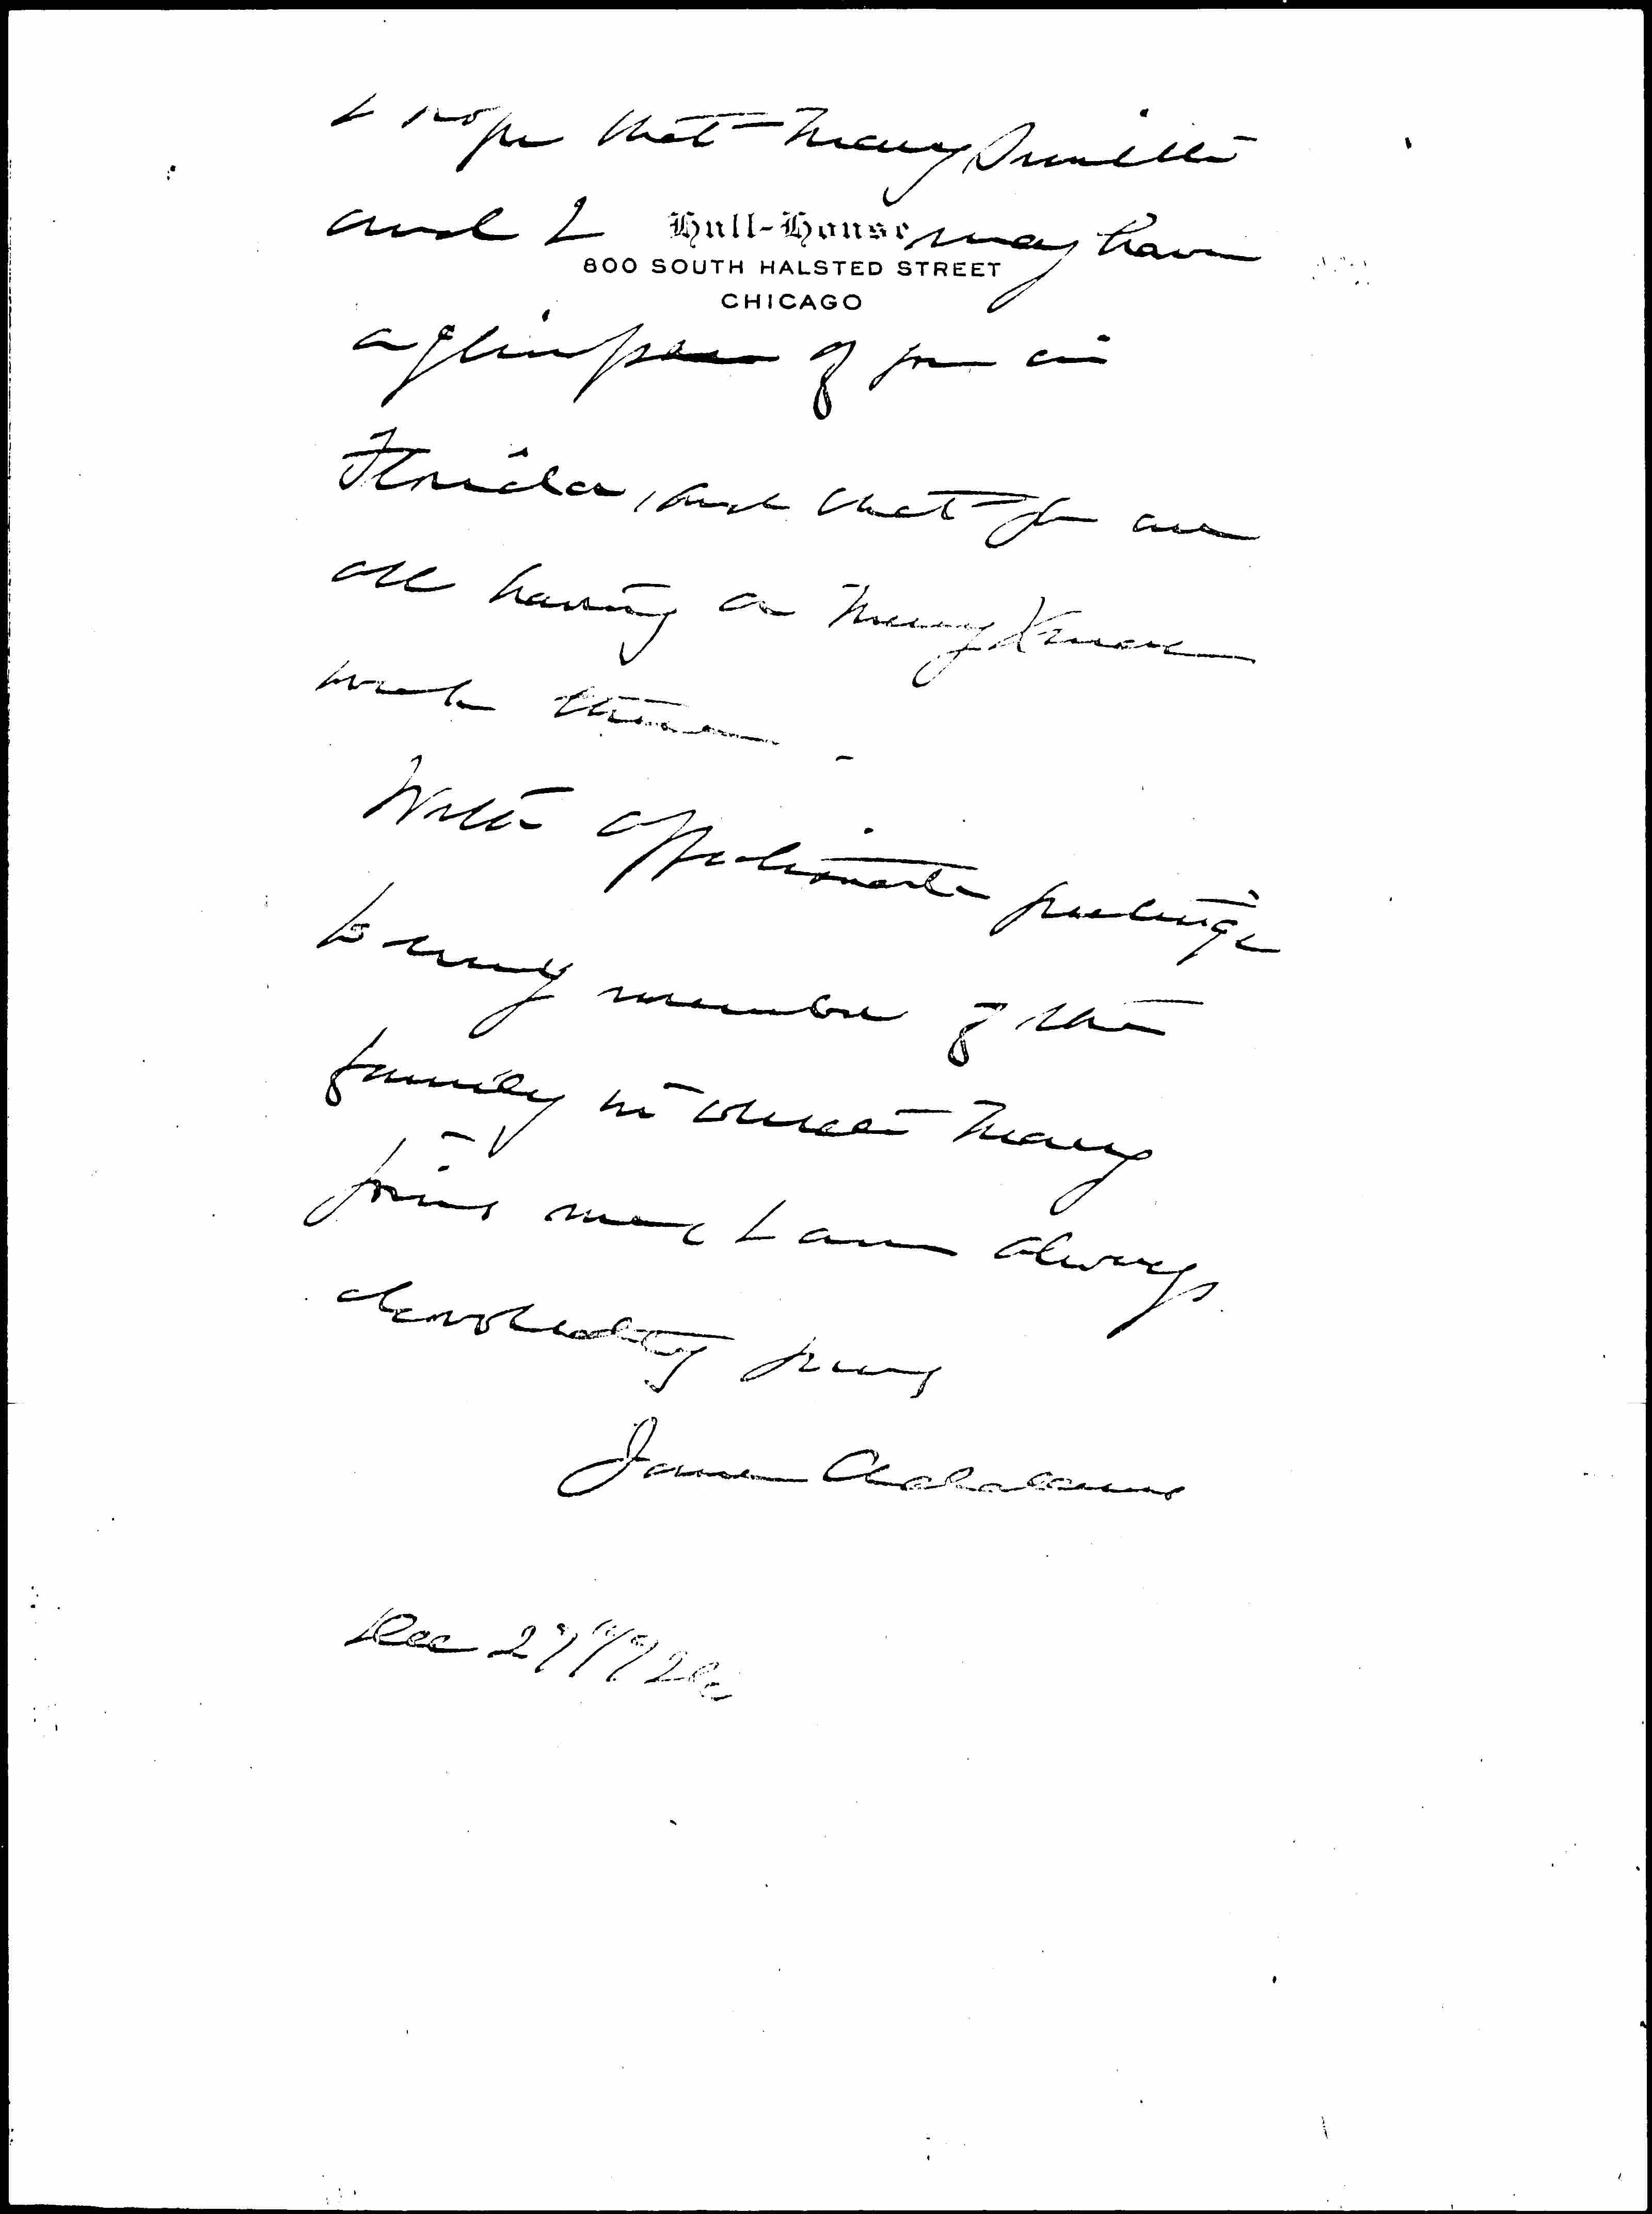 I hope that Mary Smith
and I Hull-House may have
800 SOUTH HALSTED STREET
CHICAGO
a glimpse of you in
Florida, and that you are
all having a merry Xmas
week there.
With affectionate greetings
to every member of the
family in which Mary
joins me, I am always
devotedly yours
Jane Addams
Dec 27" 192